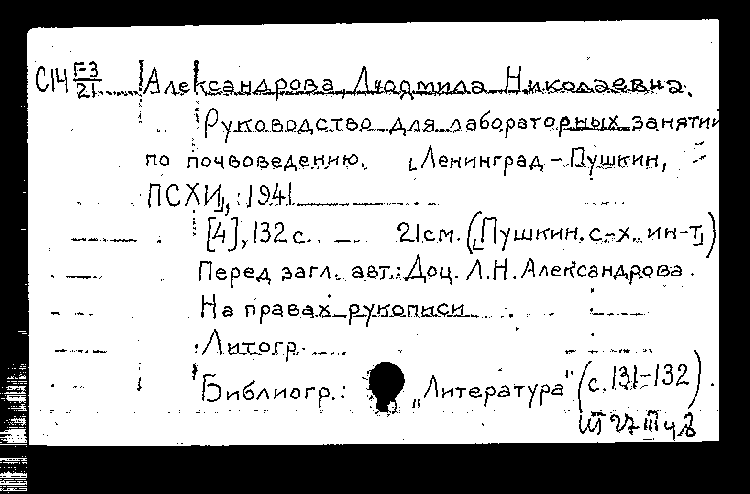 С14 Г-3/21 Александрова, Людмила Николаевна.
Руководство для лабораторных занятий
по почвоведению. [Ленинград - Пушкин,
ПСХИ], 1941
[4], 132 с. 21 см. ([Пушкин. с.-х. ин-т])
Перед загл. авт.: Доц. Л.Н. Александрова.
На правах рукописи
Литогр.
Библиогр.: „Литература" (с. 131-132).